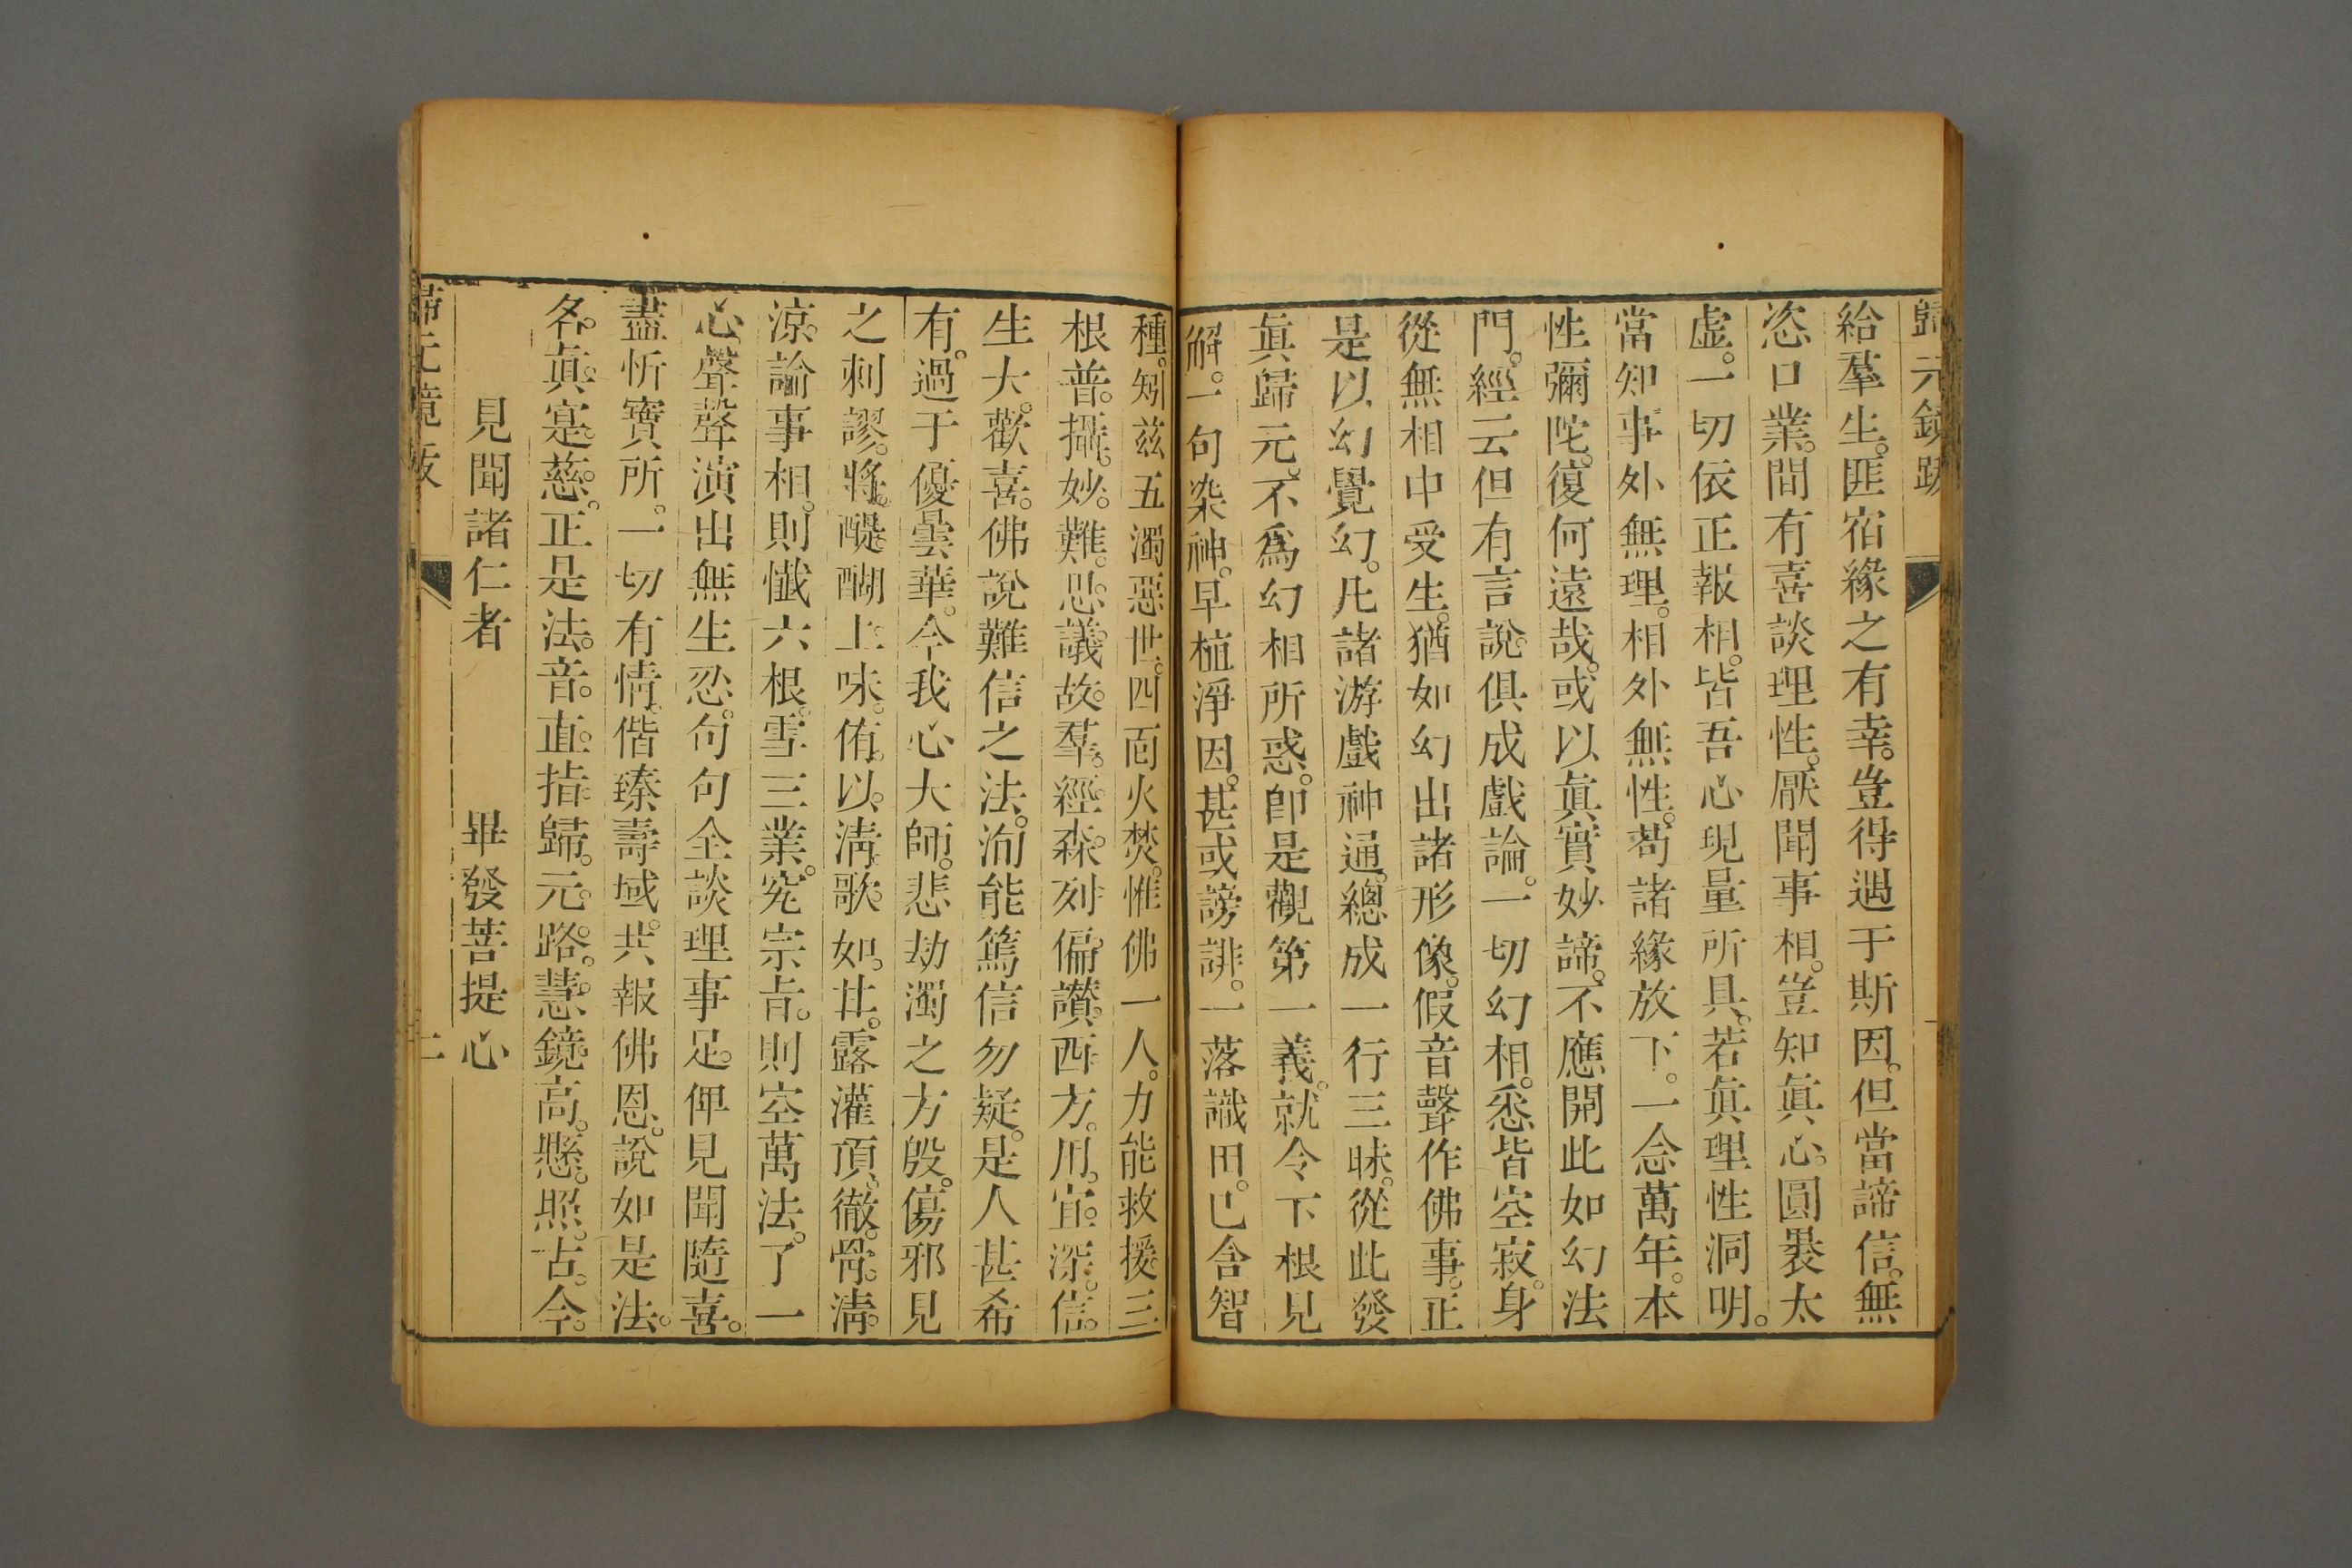 歸元鏡跋
給羣生。匪宿緣之有幸。豈得遇于斯因。但當諦信。無
恣口業。間有喜談理性。厭聞事相。豈知眞心。圓褁太
虛。一切依正報相。皆吾心現量所具。若眞理性洞明。
當知事外無理。相外無性。苟諸緣放下。一念萬年。本
性彌陀。復何遠哉。或以眞實妙諦。不應開此如幻法
門。經云但有言說。俱成戲論。一切幻相。悉皆空寂。身
從無相中受生。猶如幻出諸形像。假音聲作佛事。正
是以幻覺幻。凡諸游戲神通。總成一行三昧。從此發
眞歸元。不爲幻相所惑。卽是觀第一義。就令下根見
解。一句染神。早植淨因。甚或謗誹。一落識田。已含智
種。矧茲五濁惡世。四面火焚。惟佛一人。力能救援。三
根普。攝。妙。難。思。議。故。羣。經。森。列。偏。讚。西。方。用。宜。深。信。
生大。歡喜。佛說難信之法。洵能篤信勿疑。是人甚希
有。過于優曇華。今我心大師。悲劫濁之方殷。傷邪見
之刺謬。將。醍醐上味。侑。以。淸。歌。如。甘。露灌頂。徹。骨。淸。
涼。論事相。則懺六根。雪三業。究宗旨。則空萬法。了一
心。聲聲演出無生忍。句句全談理事足。俾見聞隨喜。
盡忻寶所。一切有情。偕臻壽域。共報佛恩。說如是法。
名。眞。寔。慈。正是法。音。直。指。歸。元。路。慧。鏡。高。懸。照。古。今。
見聞諸仁者 畢發菩提心
歸元鏡跋 二